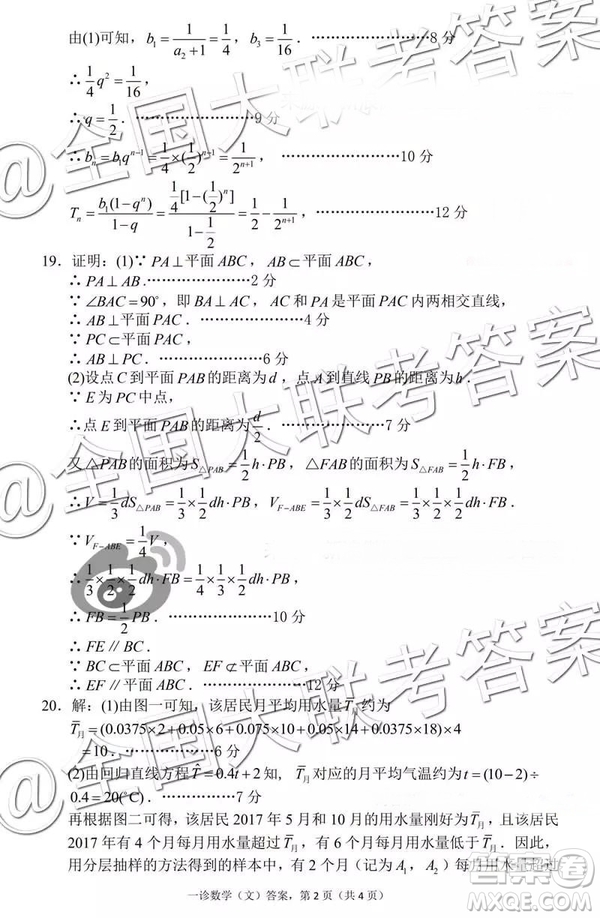 由(1)可知，b₁ = 1/(a₂+1) = 1/4，b₃ = 1/16．……………8分
∴ (1/4)q² = 1/16，
∴ q = 1/2．…………………9分
∴ bₙ = b₁qⁿ⁻¹ = 1/4×(1/2)ⁿ⁻¹ = 1/2ⁿ⁺¹，………………10分
Tₙ = b₁(1−qⁿ)/(1−q) = (1/4)[1−(1/2)ⁿ]/(1−1/2) = 1/2 − 1/2ⁿ⁺¹，………………12分
19．证明：(1)∵ PA⊥平面ABC，AB⊂平面ABC，
∴ PA⊥AB．……………2分
∵ ∠BAC=90°，即BA⊥AC，AC和PA是平面PAC内两相交直线，
∴ AB⊥平面PAC．………………4分
∵ PC⊂平面PAC，
∴ AB⊥PC．………………6分
(2)设点C到平面PAB的距离为d，点A到直线PB的距离为h．
∵ E为PC中点，
∴点E到平面PAB的距离为d/2．………………7分
又△PAB的面积为S△PAB = (1/2)h·PB，△FAB的面积为S△FAB = (1/2)h·FB，
∴ V = (1/3)dS△PAB = 1/3×1/2 dh·PB，V_F−ABE = 1/3×1/2×1/2 dh·FB．
∵ V_F−ABE = (1/4)V，
∴ 1/3×1/2×1/2 dh·FB = 1/4×1/3×1/2 dh·PB，
∴ FB = (1/2)PB．………………10分
∴ FE∥BC．
∵ BC⊂平面ABC，EF⊄平面ABC，
∴ EF∥平面ABC．………………12分
20．解：(1)由图一可知，该居民月平均用水量T̄月约为
T̄月=(0.0375×2+0.05×6+0.075×10+0.05×14+0.0375×18)×4
=10．……………6分
(2)由回归直线方程T̂=0.4t+2知，T̄月对应的月平均气温约为t=(10−2)÷
0.4=20(°C)．……………7分
再根据图二可得，该居民2017年5月和10月的用水量刚好为T̄月，且该居民
2017年有4个月每月用水量超过T̄月，有6个月每月用水量低于T̄月．因此，
用分层抽样的方法得到的样本中，有2个月（记为A₁，A₂）每月用水量超过
一诊数学（文）答案，第2页（共4页）
@全国大联考答案
@全国大联考答案
@全国大联考答案
答案圈
MXQE.COM